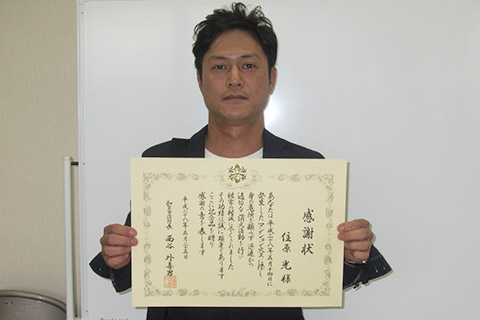 感謝状
住原 光 様
あなたは平成二十八年五月十四日に
発生したマンション火災に際し
身の危険を顧みず迅速かつ
適切な消火活動を行い
被害の軽減に尽くされました
その功績は誠に顕著であります
ここに記念品を贈り
感謝の意を表します
平成二十八年五月二十五日
西谷